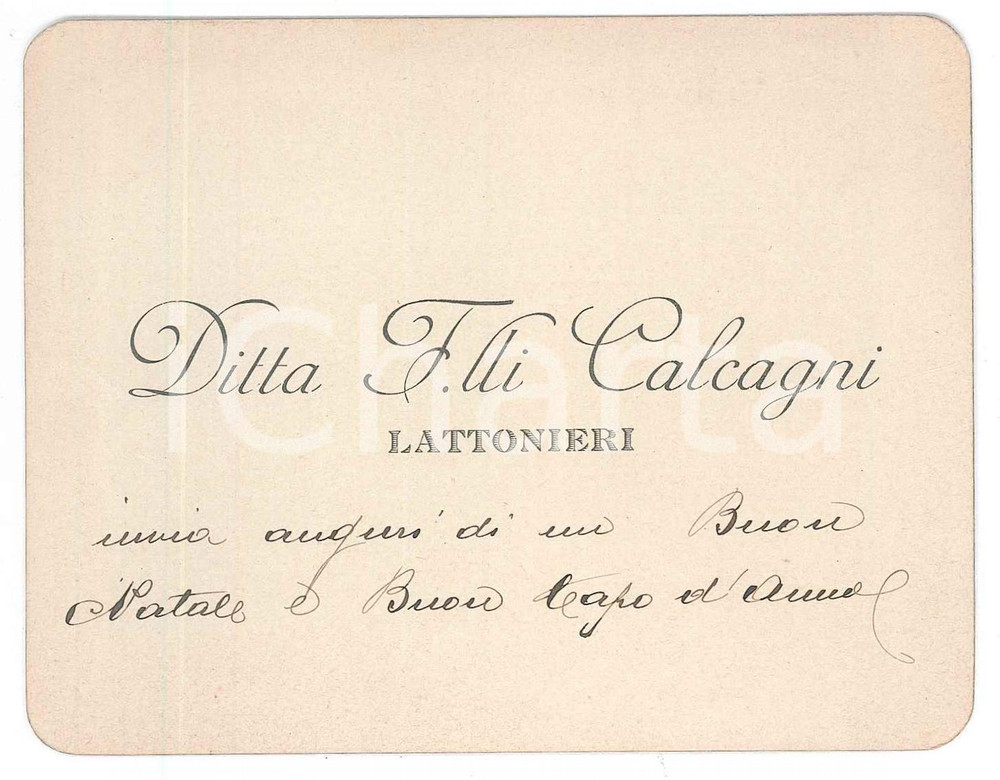 Ditta F.lli Calcagni
LATTONIERI
invia auguri di un Buon
Natale e Buon Capo d'Anno
iCharta